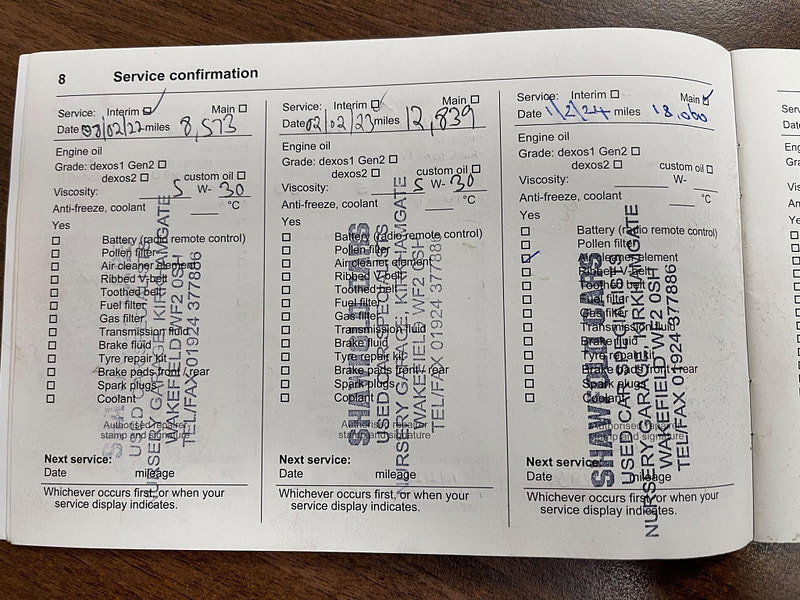 8 Service confirmation
Service: Interim ☑ Main ☐
Date 03/02/22 miles 8,573
Engine oil
Grade: dexos1 Gen2 ☐
dexos2 ☐ custom oil ☐
Viscosity: 5 W- 30
Anti-freeze, coolant °C
Yes
☐ Battery (radio remote control)
☐ Pollen filter
☐ Air cleaner element
☐ Ribbed V-belt
☐ Toothed belt
☐ Fuel filter
☐ Gas filter
☐ Transmission fluid
☐ Brake fluid
☐ Tyre repair kit
☐ Brake pads front / rear
☐ Spark plugs
☐ Coolant
Authorised repairer
stamp and signature
USED CAR SPECIALISTS
NURSERY GARAGE, KIRKHAMGATE
WAKEFIELD WF2 0SH
TEL/FAX 01924 377886
Next service:
Date mileage
Whichever occurs first, or when your
service display indicates.
Service: Interim ☑ Main ☐
Date 02/02/23 miles 12,839
Engine oil
Grade: dexos1 Gen2 ☐
dexos2 ☐ custom oil ☐
Viscosity: 5 W- 30
Anti-freeze, coolant °C
Yes
☐ Battery (radio remote control)
☐ Pollen filter
☐ Air cleaner element
☐ Ribbed V-belt
☐ Toothed belt
☐ Fuel filter
☐ Gas filter
☐ Transmission fluid
☐ Brake fluid
☐ Tyre repair kit
☐ Brake pads front / rear
☐ Spark plugs
☐ Coolant
Authorised repairer
stamp and signature
SHAWFOLD CARS
USED CAR SPECIALISTS
NURSERY GARAGE, KIRKHAMGATE
WAKEFIELD WF2 0SH
TEL/FAX 01924 377886
Next service:
Date mileage
Whichever occurs first, or when your
service display indicates.
Service: Interim ☐ Main ☑
Date 1/2/24 miles 18,060
Engine oil
Grade: dexos1 Gen2 ☐
dexos2 ☐ custom oil ☐
Viscosity: W-
Anti-freeze, coolant °C
Yes
☐ Battery (radio remote control)
☐ Pollen filter
☑ Air cleaner element
☐ Ribbed V-belt
☐ Toothed belt
☐ Fuel filter
☐ Gas filter
☐ Transmission fluid
☐ Brake fluid
☐ Tyre repair kit
☐ Brake pads front / rear
☐ Spark plugs
☐ Coolant
Authorised repairer
stamp and signature
SHAWFOLD CARS
USED CAR SPECIALISTS
NURSERY GARAGE, KIRKHAMGATE
WAKEFIELD WF2 0SH
TEL/FAX 01924 377886
Next service:
Date mileage
Whichever occurs first, or when your
service display indicates.